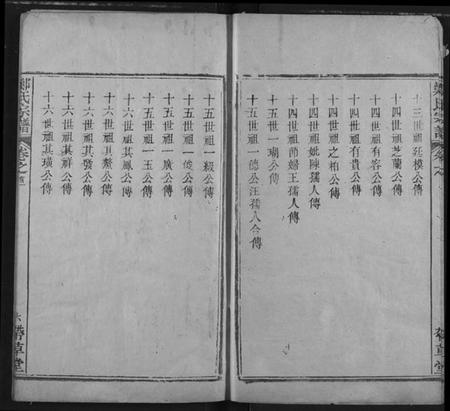 十三世祖廷模公傳
十四世祖芝蘭公傳
十四世祖有客公傳
十四世祖有貴公傳
十四世祖之柏公傳
十四世祖妣陳孺人傳
十四世祖節婦王孺人傳
十五世一瑚公傳
十五世祖一德公汪孺人合傳
鄭氏宗譜
卷之
帶草堂
十五世祖一綴公傳
十五世祖一俊公傳
十五世祖一廣公傳
十五世祖一玉公傳
十六世祖其鳳公傳
十六世祖其鰲公傳
十六世祖其發公傳
十六世祖其祥公傳
十六世祖其璜公傳
鄭氏宗譜
卷之
六
帶草堂